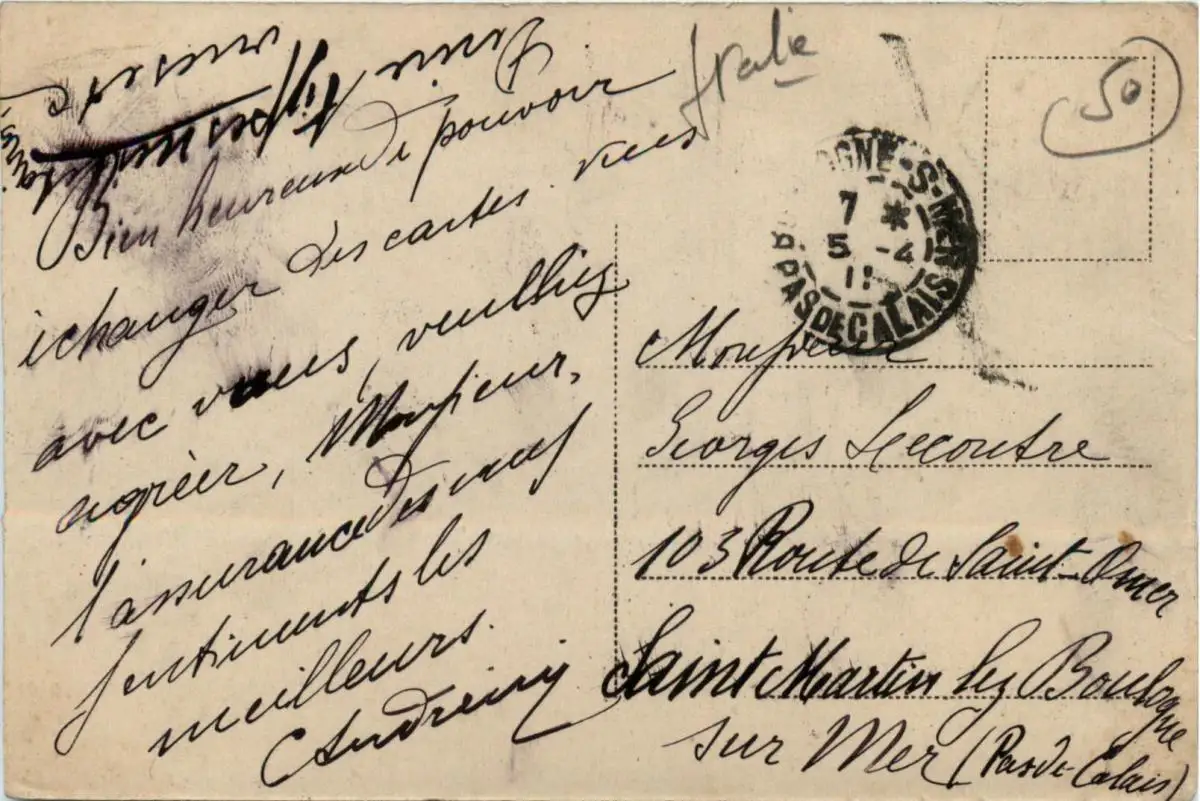 Italie
50
Bien heureux de pouvoir
échanger des cartes vues
avec vous, veuillez
agréer, Monsieur,
l'assurance de mes
sentiments les
meilleurs.
OGNE-S-MER
7 *
5 -41
11
PAS DE CALAIS
Monsieur
Georges Lecoutre
103 Route de Saint-Omer
Saint Martin lez Boulogne
sur Mer (Pas de Calais)